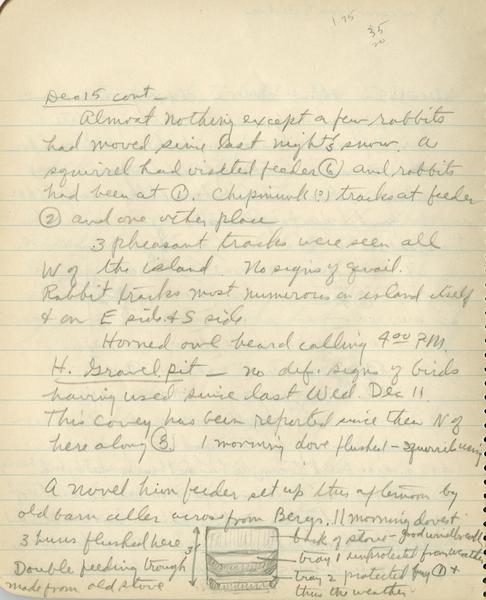 1.75
35
20
Dec 15 cont -
Almost nothing except a few rabbits
had moved since last night's snow. A
squirrel had visited feeder ⑥ and rabbits
had been at ①. Chipmunk (?) tracks at feeder
② and one other place
3 pheasant tracks were seen all
W of the island No signs of quail.
Rabbit tracks most numerous on island itself
& on E side & S side.
Horned owl heard calling 4:00 P.M.
H. Gravel pit - no def. signs of birds
having used since last Wed. Dec 11.
This covey has been reported since then N of
here along ③. 1 mourning dove flushed - squirrels using
A novel Hun feeder set up this afternoon by
old barn cellar across from Bergs. 11 mourning doves &
3 huns flushed here
Double feeding trough
made from old stove
3'
back of stove - good windbreak
tray 1 unprotected from weather
tray 2 protected by ① &
thus the weather